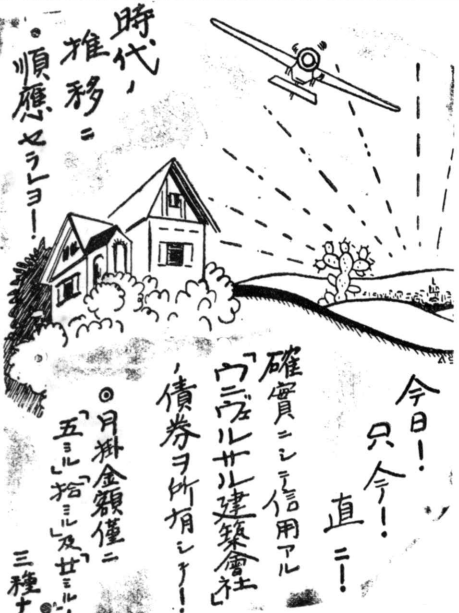 時代ノ
推移ニ
順應セラレヨ！
今日！
只今！
直ニ！
確實ニシテ信用アル
「ウニヴェルサル建築會社」
ノ債券ヲ所有シテ！
◎月掛金額僅ニ
「五ミル」「拾ミル」及「廿ミル」
三種ナ